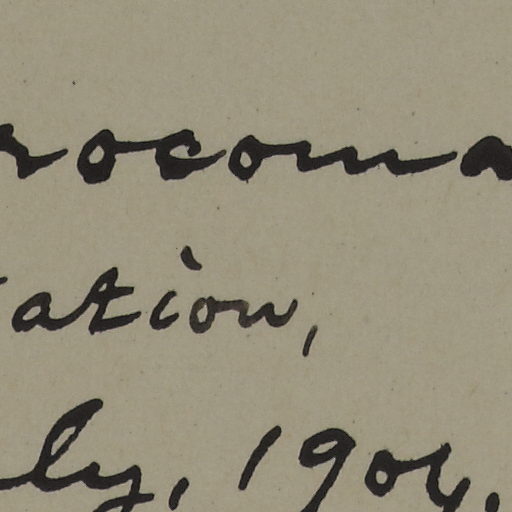 rocoma
tation,
ly, 1904.